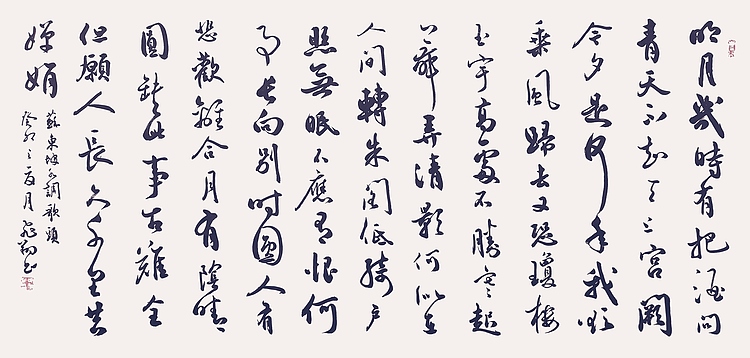 明月幾時有把酒問
青天不知天上宮闕
今夕是何年我欲
乘風歸去又恐瓊樓
玉宇高處不勝寒起
舞弄清影何似在
人間轉朱閣低綺戶
照無眠不應有恨何
事長向別時圓人有
悲歡離合月有陰晴
圓缺此事古難全
但願人長久千里共
嬋娟
蘇東坡水調歌頭
癸卯之夏月